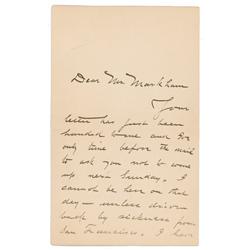 Dear Mr Markham
Your
letter has just been
handed to me and I've
only time before the mail
to ask you not to come
up next Sunday. I
cannot be here on that
day — unless driven
back by sickness from
San Francisco. I have